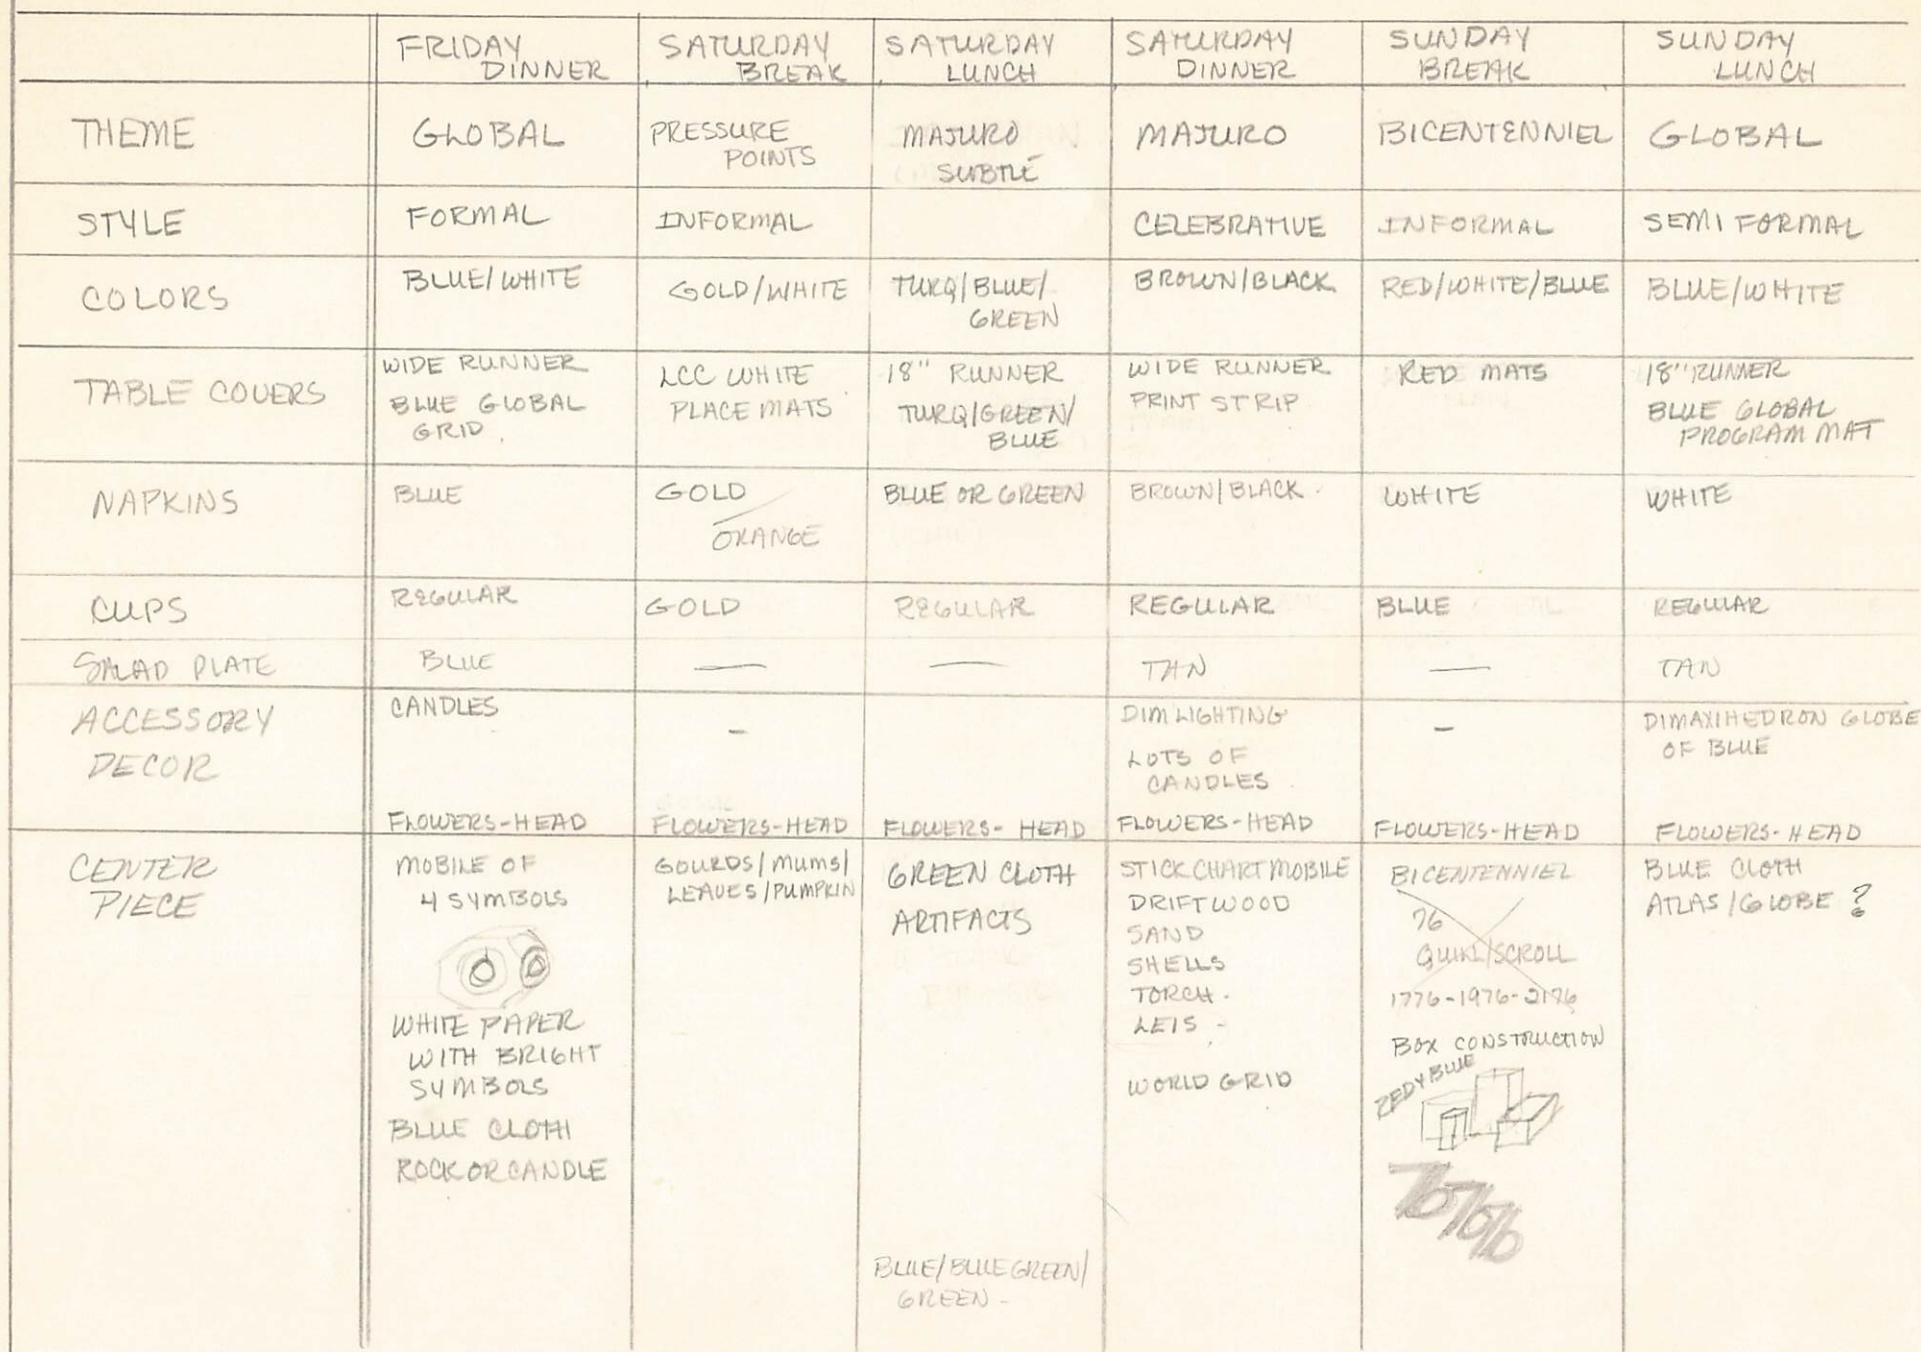 FRIDAY DINNER
SATURDAY BREAK
SATURDAY LUNCH
SATURDAY DINNER
SUNDAY BREAK
SUNDAY LUNCH
THEME
GLOBAL
PRESSURE
POINTS
MAJURO
SUBTLE
MAJURO
BICENTENNIEL
GLOBAL
STYLE
FORMAL
INFORMAL
CELEBRATIVE
INFORMAL
SEMI FORMAL
COLORS
BLUE/WHITE
GOLD/WHITE
TURQ/BLUE/
GREEN
BROWN/BLACK
RED/WHITE/BLUE
BLUE/WHITE
TABLE COVERS
WIDE RUNNER
BLUE GLOBAL
GRID.
LCC WHITE
PLACE MATS
18" RUNNER
TURQ/GREEN/
BLUE
WIDE RUNNER
PRINT STRIP
RED MATS
18" RUNNER
BLUE GLOBAL
PROGRAM MAT
NAPKINS
BLUE
GOLD
ORANGE
BLUE OR GREEN
BROWN/BLACK
WHITE
WHITE
CUPS
REGULAR
GOLD
REGULAR
REGULAR
BLUE
REGULAR
SALAD PLATE
BLUE
—
—
TAN
—
TAN
ACCESSORY
DECOR
CANDLES
FLOWERS-HEAD
-
FLOWERS-HEAD
FLOWERS-HEAD
DIM LIGHTING
LOTS OF
CANDLES
FLOWERS-HEAD
-
FLOWERS-HEAD
DIMAXIHEDRON GLOBE
OF BLUE
FLOWERS-HEAD
CENTER
PIECE
MOBILE OF
4 SYMBOLS
WHITE PAPER
WITH BRIGHT
SYMBOLS
BLUE CLOTH
ROCK OR CANDLE
GOURDS/MUMS/
LEAVES/PUMPKIN
GREEN CLOTH
ARTIFACTS
BLUE/BLUEGREEN/
GREEN -
STICK CHART MOBILE
DRIFTWOOD
SAND
SHELLS
TORCH.
LEIS -
WORLD GRID
BICENTENNIEL
76
QUILL/SCROLL
1776-1976-2176
BOX CONSTRUCTION
BLUE
767676
BLUE CLOTH
ATLAS/GLOBE ?